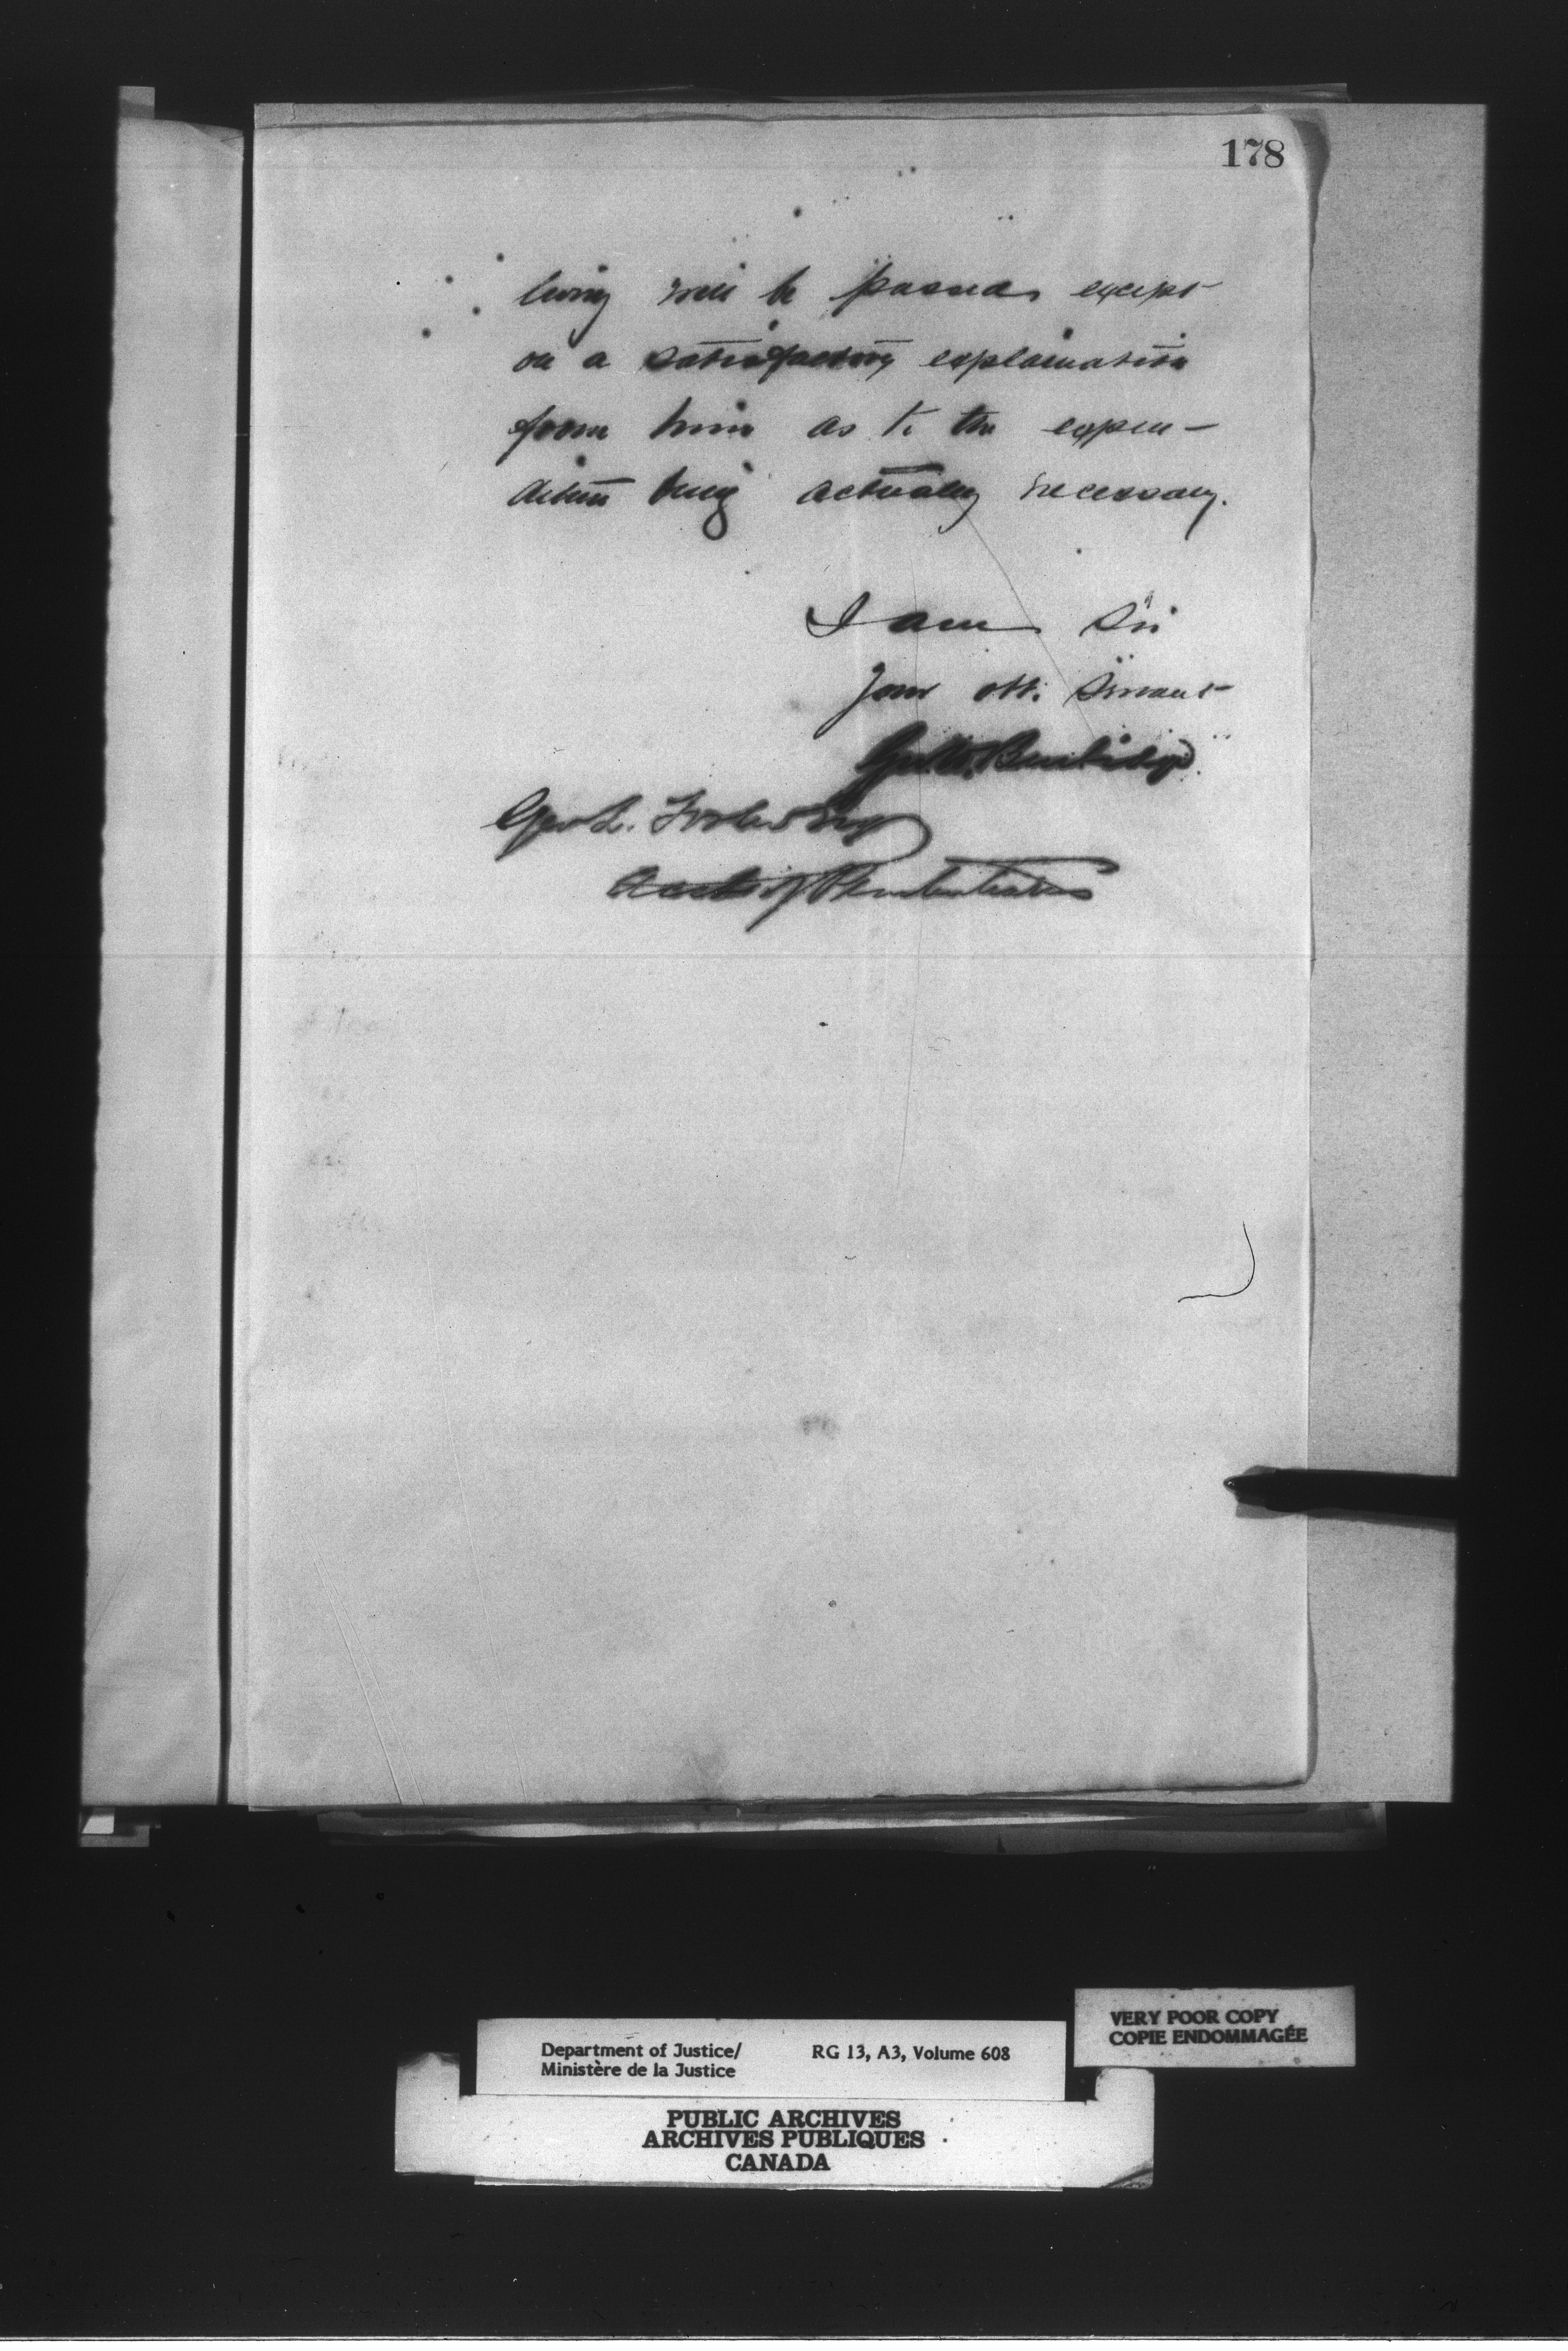 178
living will be passed except
on a satisfactory explanation
from him as to the expen-
diture being actually necessary.
I am Sir
Your obt. Servant
Geo. W. Burbidge
Geo L. Foster Esq
Acct of Penitentiaries
VERY POOR COPY
COPIE ENDOMMAGÉE
Department of Justice/ RG 13, A3, Volume 608
Ministère de la Justice
PUBLIC ARCHIVES
ARCHIVES PUBLIQUES
CANADA